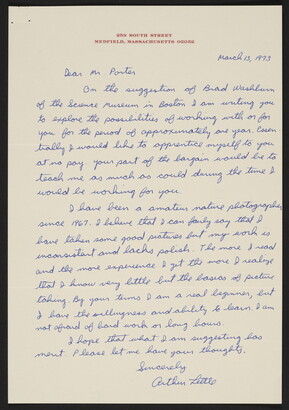 250 SOUTH STREET
MEDFIELD, MASSACHUSETTS 02052
March 13, 1973
Dear Mr. Porter
On the suggestion of Brad Washburn
of the Science Museum in Boston I am writing you
to explore the possibilities of working with or for
you for the period of approximately one year. Essen
tially I would like to apprentice myself to you
at no pay. Your part of the bargain would be to
teach me as much as could during the time I
would be working for you.
I have been a amateur nature photographer
since 1967. I believe that I can fairly say that I
have taken some good pictures but my work is
inconsistant and lacks polish. The more I read
and the more experience I get the more I realize
that I know very little but the basics of picture
taking. By your terms I am a real beginner, but
I have the willingness and ability to learn. I am
not afraid of hard work or long hours.
I hope that what I am suggesting has
merit. Please let me have your thoughts.
Sincerely
Arthur Little